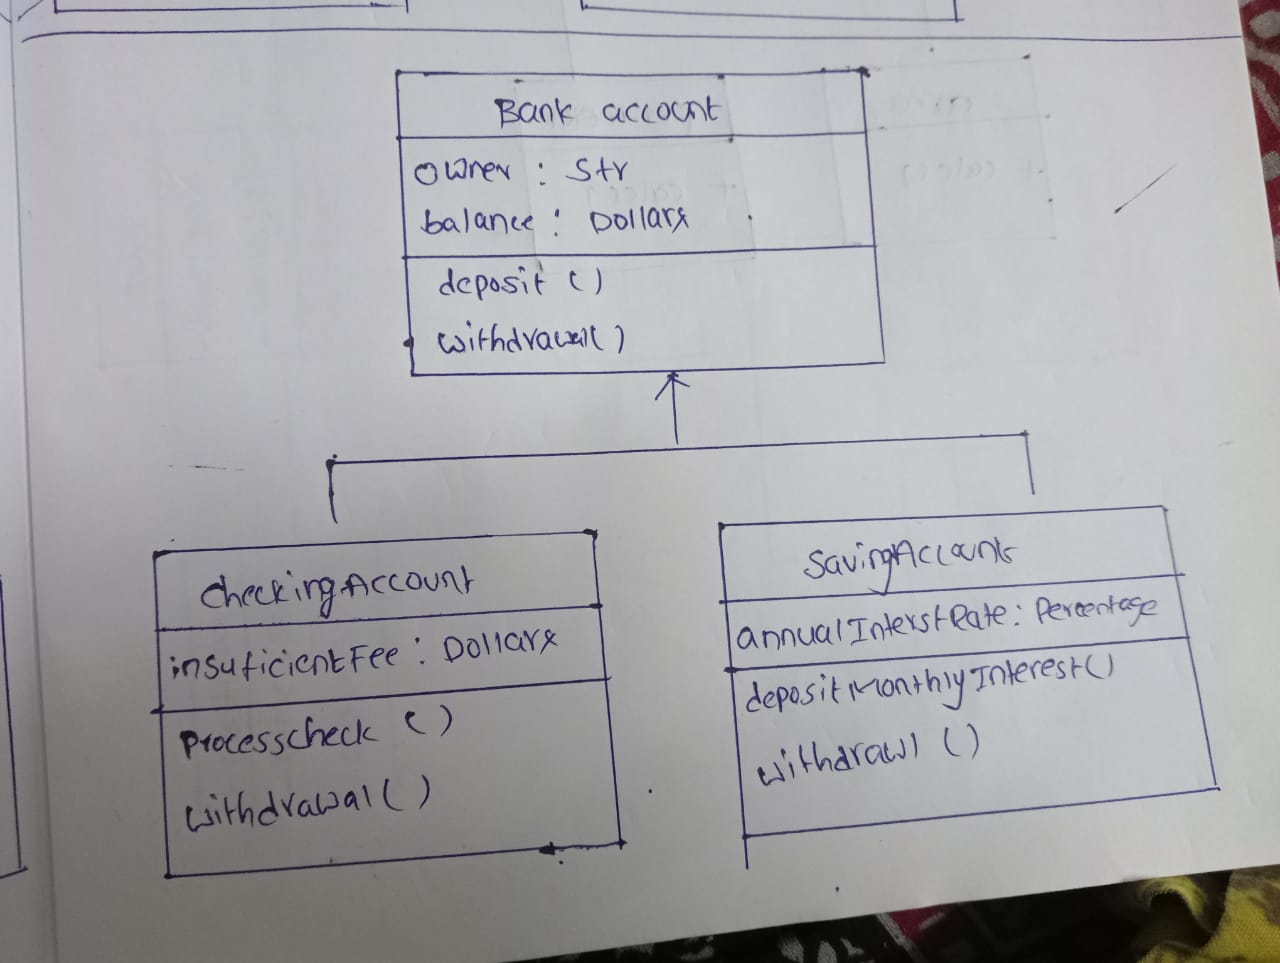 Bank account
owner : Str
balance : Dollars
deposit ( )
withdrawal( )
checkingAccount
insuficientFee : Dollars
Processcheck ( )
withdrawal ( )
SavingAccount
annualInterstRate: Percentage
depositMonthlyInterest( )
withdrawl ( )